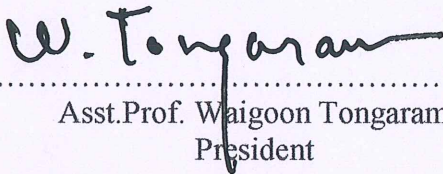 W. Tongaram
Asst.Prof. Waigoon Tongaram
President